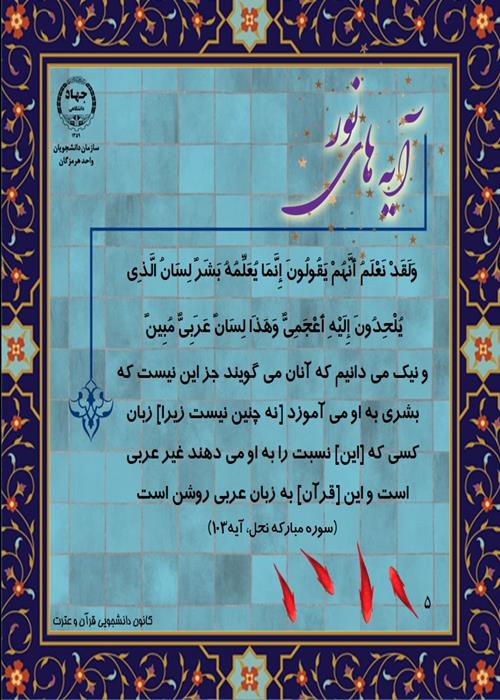 آیه های نور
جهاد
دانشگاهی
۱۳۵۹
سازمان دانشجویان
واحد هرمزگان
وَلَقَدْ نَعْلَمُ أَنَّهُمْ يَقُولُونَ إِنَّمَا يُعَلِّمُهُ بَشَرٌ لِسَانُ الَّذِى
يُلْحِدُونَ إِلَيْهِ أَعْجَمِىٌّ وَهَذَا لِسَانٌ عَرَبِىٌّ مُبِينٌ
و نیک می دانیم که آنان می گویند جز این نیست که
بشری به او می آموزد [نه چنین نیست زیرا] زبان
کسی که [این] نسبت را به او می دهند غیر عربی
است و این [قرآن] به زبان عربی روشن است
(سوره مبارکه نحل، آیه۱۰۳)
۵
کانون دانشجویی قرآن و عترت